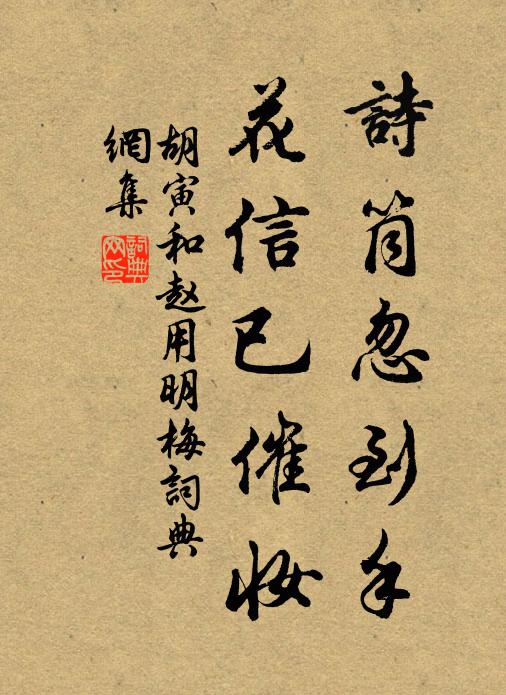 詩筒忽到手
花信已催妝
胡寅和赵用明梅詞典
網集
詞典
网印